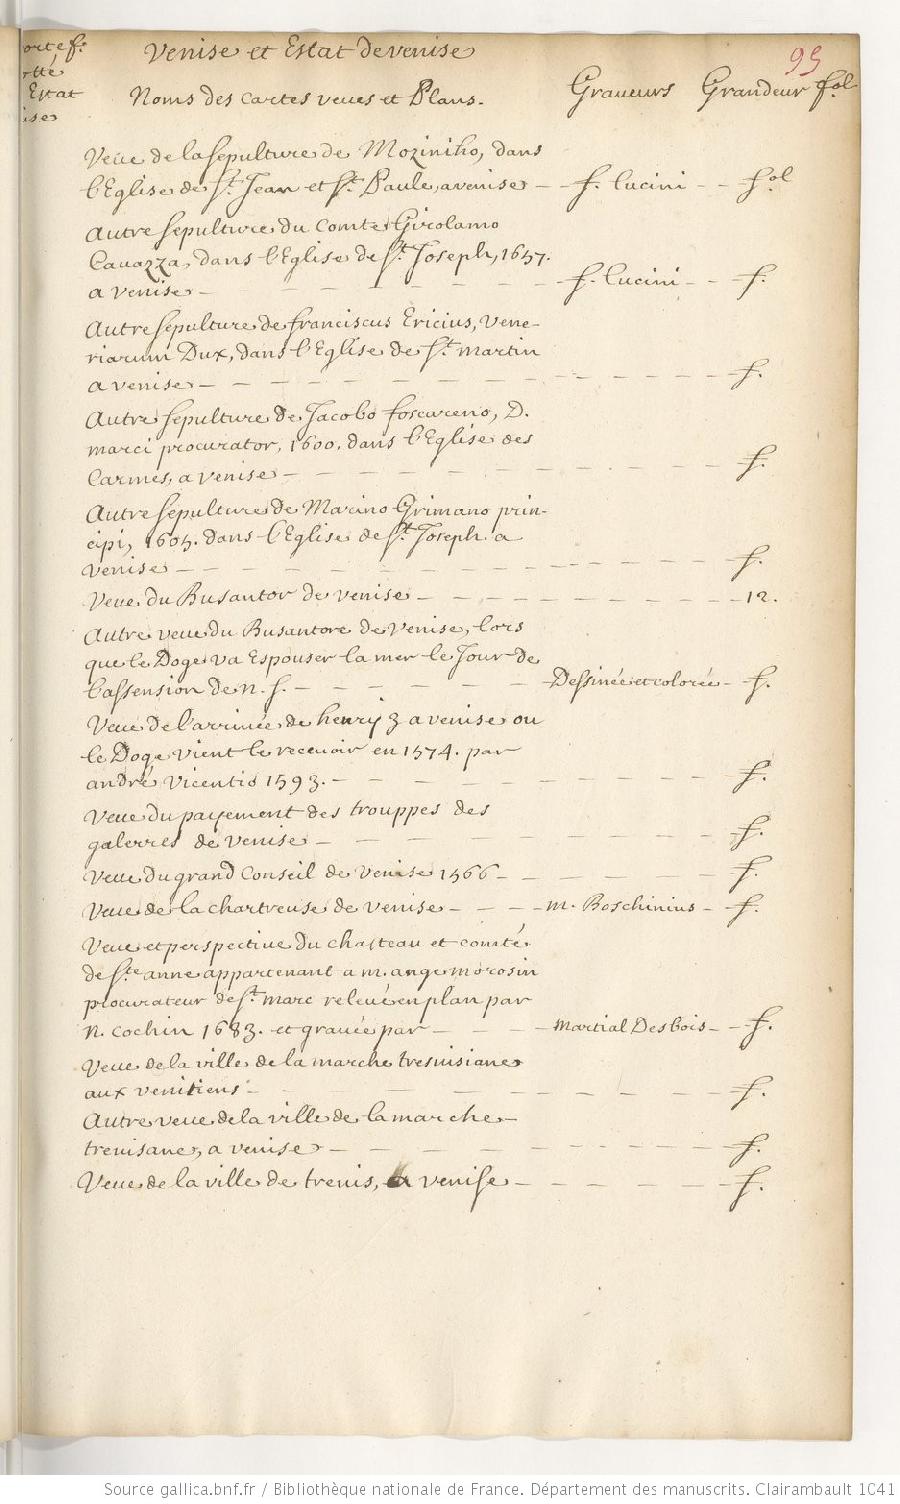 ortef.
otté
Estat
ise
95
Venise et Estat de venise
Noms des cartes veues et Plans. Graueurs Grandeur fol
Veüe de la sepulture de Moziniho, dans
l'Eglise de St. Jean et St. Paule, a venise - f. Cucini - - fol
Autre sepulture du Comte Girolamo
Cauazza, dans l'Eglise de St. Joseph, 1657.
a venise - f. Cucini - - f.
Autre sepulture de franciscus Ericius, Vene-
riarum Dux, dans l'Eglise de St. martin
a venise - f.
Autre sepulture de Jacobo foscareno, D.
marci procurator, 1600. dans l'Eglise des
Carmes, a venise - f.
Autre sepulture de Marino Grimano prin-
cipi, 1605. dans l'Eglise de St. Joseph a
venise - f.
Veue du Busantor de venise - 12.
Autre veue du Busantore de Venise, lors
que le Doge va Espouser la mer le Jour de
l'assension de n. s. - Dessinée et colorée - f.
Veue de l'arriuée de henry 3 a venise ou
le Doge vient le receuoir en 1574. par
andré Vicentio 1593. - f.
Veue du payement des trouppes des
galerres de venise - f.
Veue du grand Conseil de Venise 1566 - f.
Veue de la chartreuse de venise - m. Boschinius - f.
Veue et perspectiue du chasteau et comté
de Ste anne appartenant a m. ange morosin
procurateur de St. marc releué en plan par
N. Cochin 1683. et grauée par - Martial Desbois - f.
Veue de la ville de la marche tresuisiane
aux venitiens - f.
Autre veue de la ville de la marche
treuisane, a venise - f.
Veue de la ville de treuis, a venise - f.
Source gallica.bnf.fr / Bibliothèque nationale de France. Département des manuscrits. Clairambault 1041